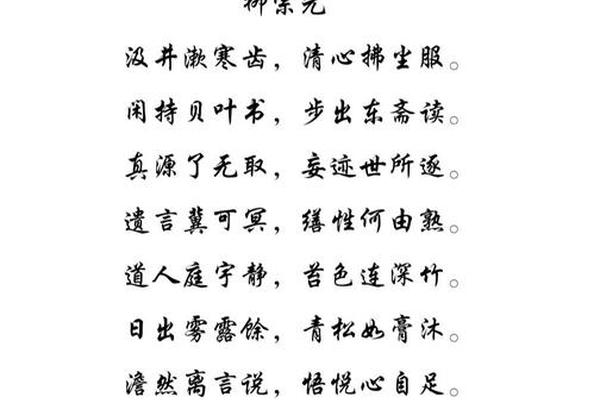 柳宗元
汲井漱寒齿，清心拂尘服。
闲持贝叶书，步出东斋读。
真源了无取，妄迹世所逐。
遗言冀可冥，缮性何由熟。
道人庭宇静，苔色连深竹。
日出雾露馀，青松如膏沐。
澹然离言说，悟悦心自足。